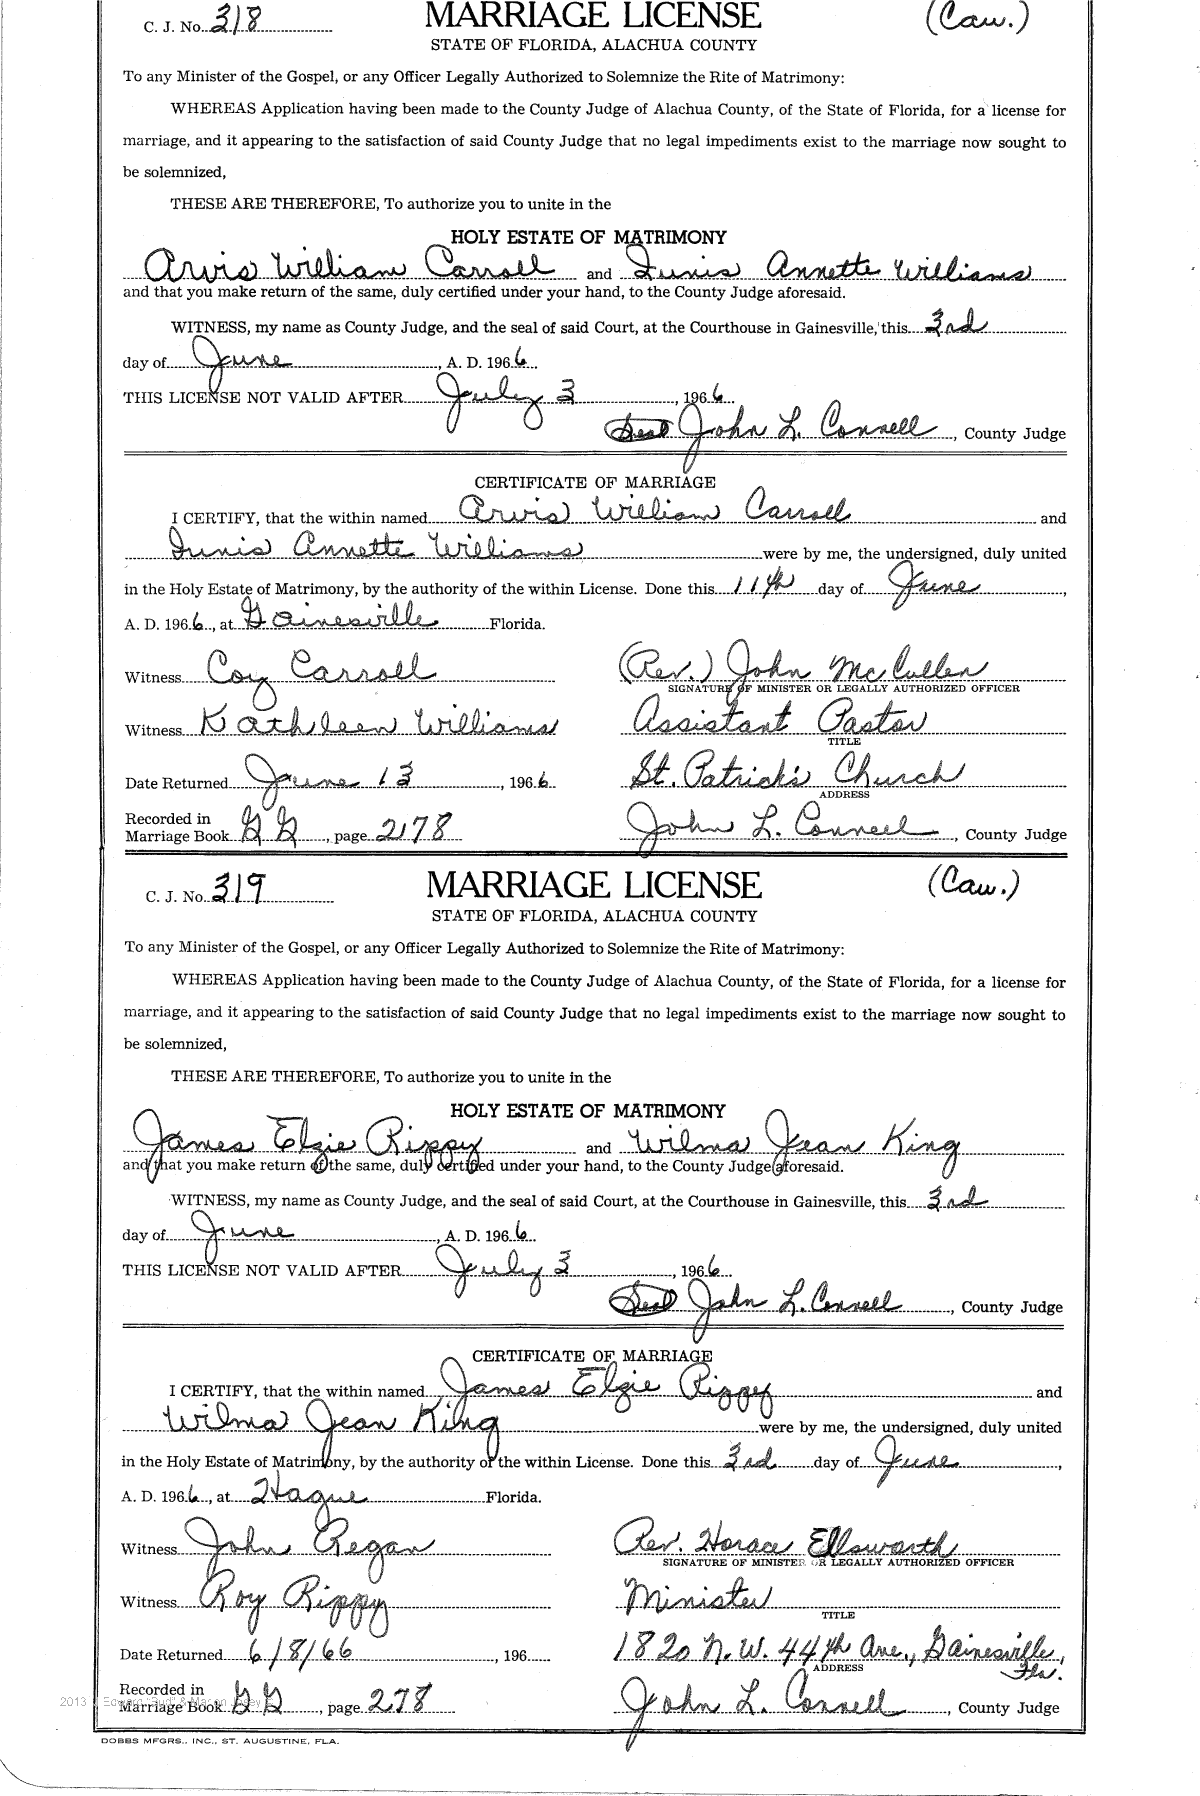 C. J. No. 318 MARRIAGE LICENSE (Cau.)
STATE OF FLORIDA, ALACHUA COUNTY
To any Minister of the Gospel, or any Officer Legally Authorized to Solemnize the Rite of Matrimony:
WHEREAS Application having been made to the County Judge of Alachua County, of the State of Florida, for a license for
marriage, and it appearing to the satisfaction of said County Judge that no legal impediments exist to the marriage now sought to
be solemnized,
THESE ARE THEREFORE, To authorize you to unite in the
HOLY ESTATE OF MATRIMONY
Arvis William Carroll and Iunis Annette Williams
and that you make return of the same, duly certified under your hand, to the County Judge aforesaid.
WITNESS, my name as County Judge, and the seal of said Court, at the Courthouse in Gainesville, this 3rd
day of June, A. D. 1966
THIS LICENSE NOT VALID AFTER July 3, 1966
Seal John L. Connell, County Judge
CERTIFICATE OF MARRIAGE
I CERTIFY, that the within named Arvis William Carroll and
Iunis Annette Williams were by me, the undersigned, duly united
in the Holy Estate of Matrimony, by the authority of the within License. Done this 11th day of June,
A. D. 1966, at Gainesville Florida.
Witness Coy Carroll (Rev.) John McCullen
SIGNATURE OF MINISTER OR LEGALLY AUTHORIZED OFFICER
Witness Kathleen Williams Assistant Pastor
TITLE
Date Returned June 13, 1966 St. Patrick's Church
ADDRESS
Recorded in
Marriage Book GG, page 2178 John L. Connell, County Judge
C. J. No. 319 MARRIAGE LICENSE (Cau.)
STATE OF FLORIDA, ALACHUA COUNTY
To any Minister of the Gospel, or any Officer Legally Authorized to Solemnize the Rite of Matrimony:
WHEREAS Application having been made to the County Judge of Alachua County, of the State of Florida, for a license for
marriage, and it appearing to the satisfaction of said County Judge that no legal impediments exist to the marriage now sought to
be solemnized,
THESE ARE THEREFORE, To authorize you to unite in the
HOLY ESTATE OF MATRIMONY
James Elzie Rippy and Wilma Jean King
and that you make return of the same, duly certified under your hand, to the County Judge aforesaid.
WITNESS, my name as County Judge, and the seal of said Court, at the Courthouse in Gainesville, this 3rd
day of June, A. D. 1966
THIS LICENSE NOT VALID AFTER July 3, 1966
Seal John L. Connell, County Judge
CERTIFICATE OF MARRIAGE
I CERTIFY, that the within named James Elzie Rippy and
Wilma Jean King were by me, the undersigned, duly united
in the Holy Estate of Matrimony, by the authority of the within License. Done this 3rd day of June,
A. D. 1966, at Hague Florida.
Witness John Regan Rev. Horace Ellswarth
SIGNATURE OF MINISTER OR LEGALLY AUTHORIZED OFFICER
Witness Roy Rippy Minister
TITLE
Date Returned 6/8/66, 196 1820 N.W. 44th Ave., Gainesville, Fla.
ADDRESS
Recorded in
Marriage Book GG, page 278 John L. Connell, County Judge
DOBBS MFGRS., INC., ST. AUGUSTINE, FLA.